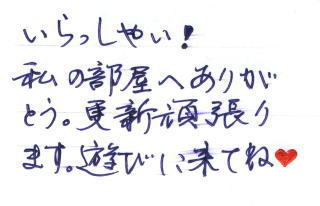 いらっしゃい!
私の部屋へありが
とう。更新頑張り
ます。遊びに来てね♥